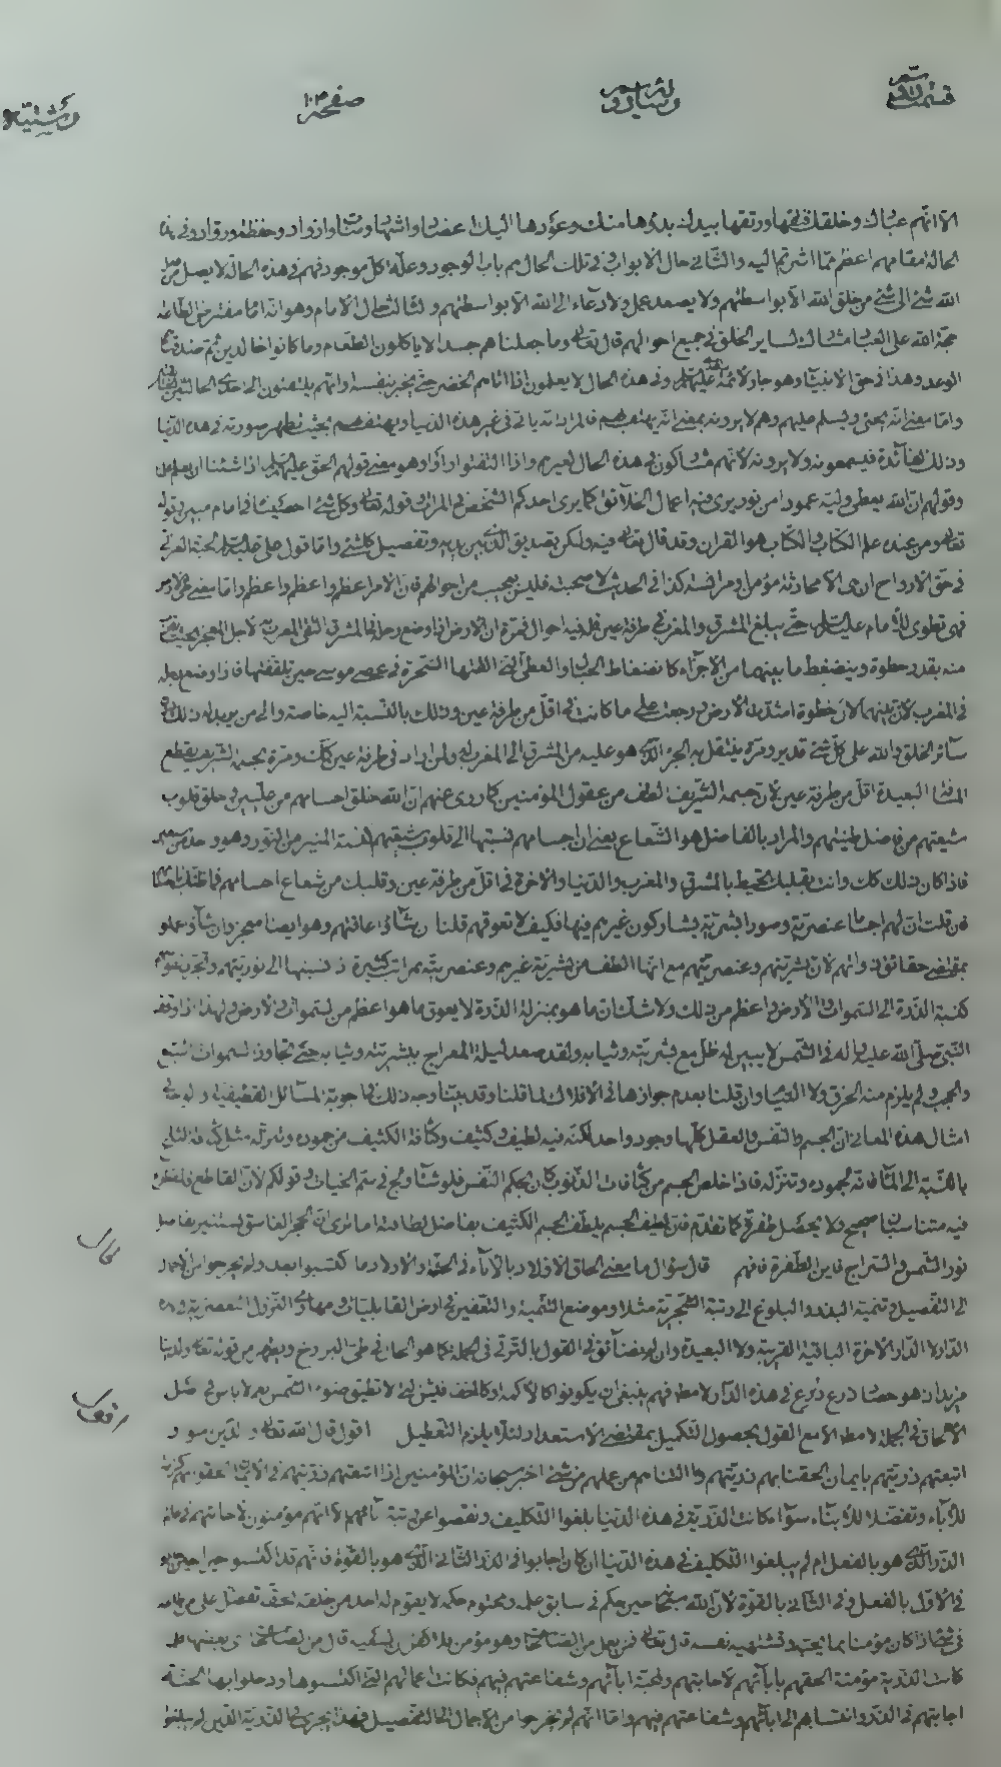 صفحه
الا انهم عبادك وخلقك فتقها ورتقها بيدك بدؤها منك وعودها اليك اعضاد واشهاد ومناة واذواد وحفظة ورواد وفي هذه
الحالة مقامهم اعظم مما اشرتم اليه والثاني حال الابواب وفي تلك الحال هم باب الوجود وعلة كل موجود فهم في هذه الحالة لا يصل من
الله شئ الى شئ من خلق الله الا بواسطتهم ولا يصعد عمل ولا دعاء الى الله الا بواسطتهم والثالث حال الامام وهو انه امام مفترض الطاعة
حجة الله على العباد مشارك لساير الخلق في جميع احوالهم قال تعالى وما جعلناهم جسدا لا ياكلون الطعام وما كانوا خالدين ثم صدقناهم
الوعد وهذا في حق الانبياء وهو جار لائمة عليهم السلام وفي هذه الحال لا يعلمون اذا اتاهم الخضر حتى يخبر بنفسه او انهم يلتفتون الى احدى الحالتين
واما معنى انه يجئ ويسلم عليهم وهم لا يرونه بمعنى انه يهتف بهم فالمراد انه ياتي في غير هذه الدنيا ويهتف بهم بحيث تظهر صورته في هذه الدنيا
وذلك لفائدة فيسمعونه ولا يرونه لانهم مشاركون في هذه الحال لغيرهم واذا التفتوا راوا وهو معنى قولهم الحق عليهم السلام اذا شئنا ان نعلم علمنا
وقولهم ان الله يعطي وليه عمودا من نور يرى فيه اعمال الخلائق كما يرى احدكم الشخص في المراة وقوله تعالى وكل شئ احصيناه في امام مبين وقوله
تعالى ومن عنده علم الكتاب والكتاب هو القران وقد قال تعالى فيه ولكن تصديق الذي بين يديه وتفصيل كل شئ واما قول علي عليه السلام لحبة العرني
في حق الارواح ان هي الا محادثة مؤمن او مؤانسته كذا في الحديث لا صحبته فليس بعجيب من احوالهم فان الامر اعظم واعظم واعظم واما معنى طي الارض
فهي تطوى للامام عليه السلام حتى يبلغ المشرق والمغرب في طرفة عين فله فيه احوال فمرة ان الارض اذا وضع رجله في المشرق التقى المغرب لاجل المعجز بحيث يبقى
منه بقدر خطوة وينضغط ما بينهما من الاجزاء كانضغاط الحبال والعصي التي القتها السحرة في عصى موسى حين تلقفتها فاذا وضع رجله
في المغرب لان بينهما الان خطوة امتدت الارض ورجعت على ما كانت في اقل من طرفة عين وذلك بالنسبة اليه خاصة والى من يريد له ذلك دون
سائر الخلق والله على كل شئ قدير ومرة ينتقل به الجزء الذي هو عليه من المشرق الى المغرب له ولمن اراد في طرفة عين كذلك ومرة بجسمه الشريف يقطع
المسافة البعيدة اقل من طرفة عين لان جسمه الشريف الطف من عقول المؤمنين كما روى عنهم ان الله خلق اجسامهم من عليين وخلق قلوب
شيعتهم من فاضل طينتهم والمراد بالفاضل هو الشعاع يعني ان اجسامهم نسبتها الى قلوب شيعتهم كنسبة المنير من النور وهو واحد من سبعين
فاذا كان ذلك كذلك وانت بقلبك تحيط بالمشرق والمغرب والدنيا والاخرة في اقل من طرفة عين وقلبك من شعاع اجسامهم فما ظنك باجسامهم
فان قلت ان لهم اجساما عنصرية وصورا بشرية يشاركون غيرهم فيها فكيف لا تعوقهم قلنا ان شاؤا عاقتهم وهو ايضا معجز وان شاؤا عملوا
بمقتضى حقائق ذواتهم لان بشريتهم وعنصريتهم مع انها الطف من بشرية غيرهم وعنصريته بمراتب كثيرة اذ نسبتها الى نوريتهم وتجردهم
كنسبة الذرة الى السموات والارض واعظم من ذلك ولا شك ان ما هو بمنزلة الذرة لا يعوق ما هو اعظم من السموات والارض ولهذا اذا وقف
النبي صلى الله عليه واله في الشمس لا يبين له ظل مع بشريته وثيابه ولقد صعد ليلة المعراج ببشريته وثيابه حتى تجاوز السموات السبع
والحجب ولم يلزم منه الخرق ولا التيام وان قلنا بعدم جوازها في الافلاك لما قلنا وقد بينا وجه ذلك في اجوبة المسائل القطيفية واوله في
امثال هذه المعاني ان الجسم والنفس والعقل كلها وجود واحد لكنه فيه لطيف وكثيف وكثافة الكثيف من جموده وتنزله مثل كثافة الثلج
بالنسبة الى الماء فانه بجموده وتنزله فاذا خلص الجسم من كثافات الذنوب كان بحكم النفس فلو شاء ولج في سم الخياط وقولكم لان القاطع فالمقطوع
فيه متناسبان صحيح فلا يحصل طفرة كما تقدم فان لطيف الجسم يلطف الجسم الكثيف بفاضل لطافته اما ترى ان الحجر الغاسق يستنير بفاضل
نور الشمس والسراج فاين الطفرة فافهم قال سؤال ما معنى الحاق الاولاد بالاباء في الجنة والاولاد ما كسبوا بعد ولم يخرجوا من الاجمال
الى التفصيل وتنمية البذر والبلوغ الى رتبة الشجرية مثلا وموضع التنمية والتعفين في ارض القابليات ومهاوي النزول العنصرية في هذه
الدار لا الدار الاخرة الباقية القريبة ولا البعيدة وان لم نضائق في القول بالترقي في الجملة كما هو الحال في طي البرزخ
مزيد اذ هو حصاد زرع زرع في هذه الدار لا مط فهم ينبغي ان يكونوا كالاكمه او كالخفافيش التي لا تطيق ضوء الشمس نعم لا باس في اصل
الالحاق في الجملة لا مطلقا مع القول بحصول التكميل بمقتضى الاستعداد ولئلا يلزم التعطيل اقول قال الله تعالى والذين امنوا و
اتبعتهم ذريتهم بايمان الحقنا بهم ذريتهم وما التناهم من عملهم من شئ اخبر سبحانه ان المؤمنين اذا اتبعتهم ذريتهم في الايمان الحقوا بهم كرامة
للاباء وتفضلا للابناء سواء كانت الذرية في هذه الدنيا بلغوا التكليف ونقصوا عن رتبة ابائهم الا انهم مؤمنون لاجابتهم في عالم
الذر الذي هو بالفعل ام لم يبلغوا التكليف في هذه الدنيا ان كان اجابوا في الذر الثاني الذي هو بالقوة فانهم قد اكتسبوا خيرا حين اجابوا
في الاول بالفعل وفي الثاني بالقوة لان الله سبحانه حين حكم في سابق علمه ومحتوم حكمه لا يقوم له احد من خلقه بحقه تفضل على من اطاعه
في شئ اذا كان مؤمنا بما يحبه وتشتهيه نفسه قال تعالى فمن يعمل من الصالحات وهو مؤمن فلا كفران لسعيه قال من الصالحات اي بعضها فلما
كانت الذرية مؤمنة الحقهم بابائهم لاجابتهم ولمحبة ابائهم وشفاعتهم فيهم فكانت اعمالهم التي اكتسبوها ودخلوا بها الجنة
اجابتهم في الذر وانتسابهم الى ابائهم وشفاعتهم فيهم واما انهم لم يخرجوا من الاجمال الى التفصيل فهذا يجري في الذرية الذين لم يبلغوا